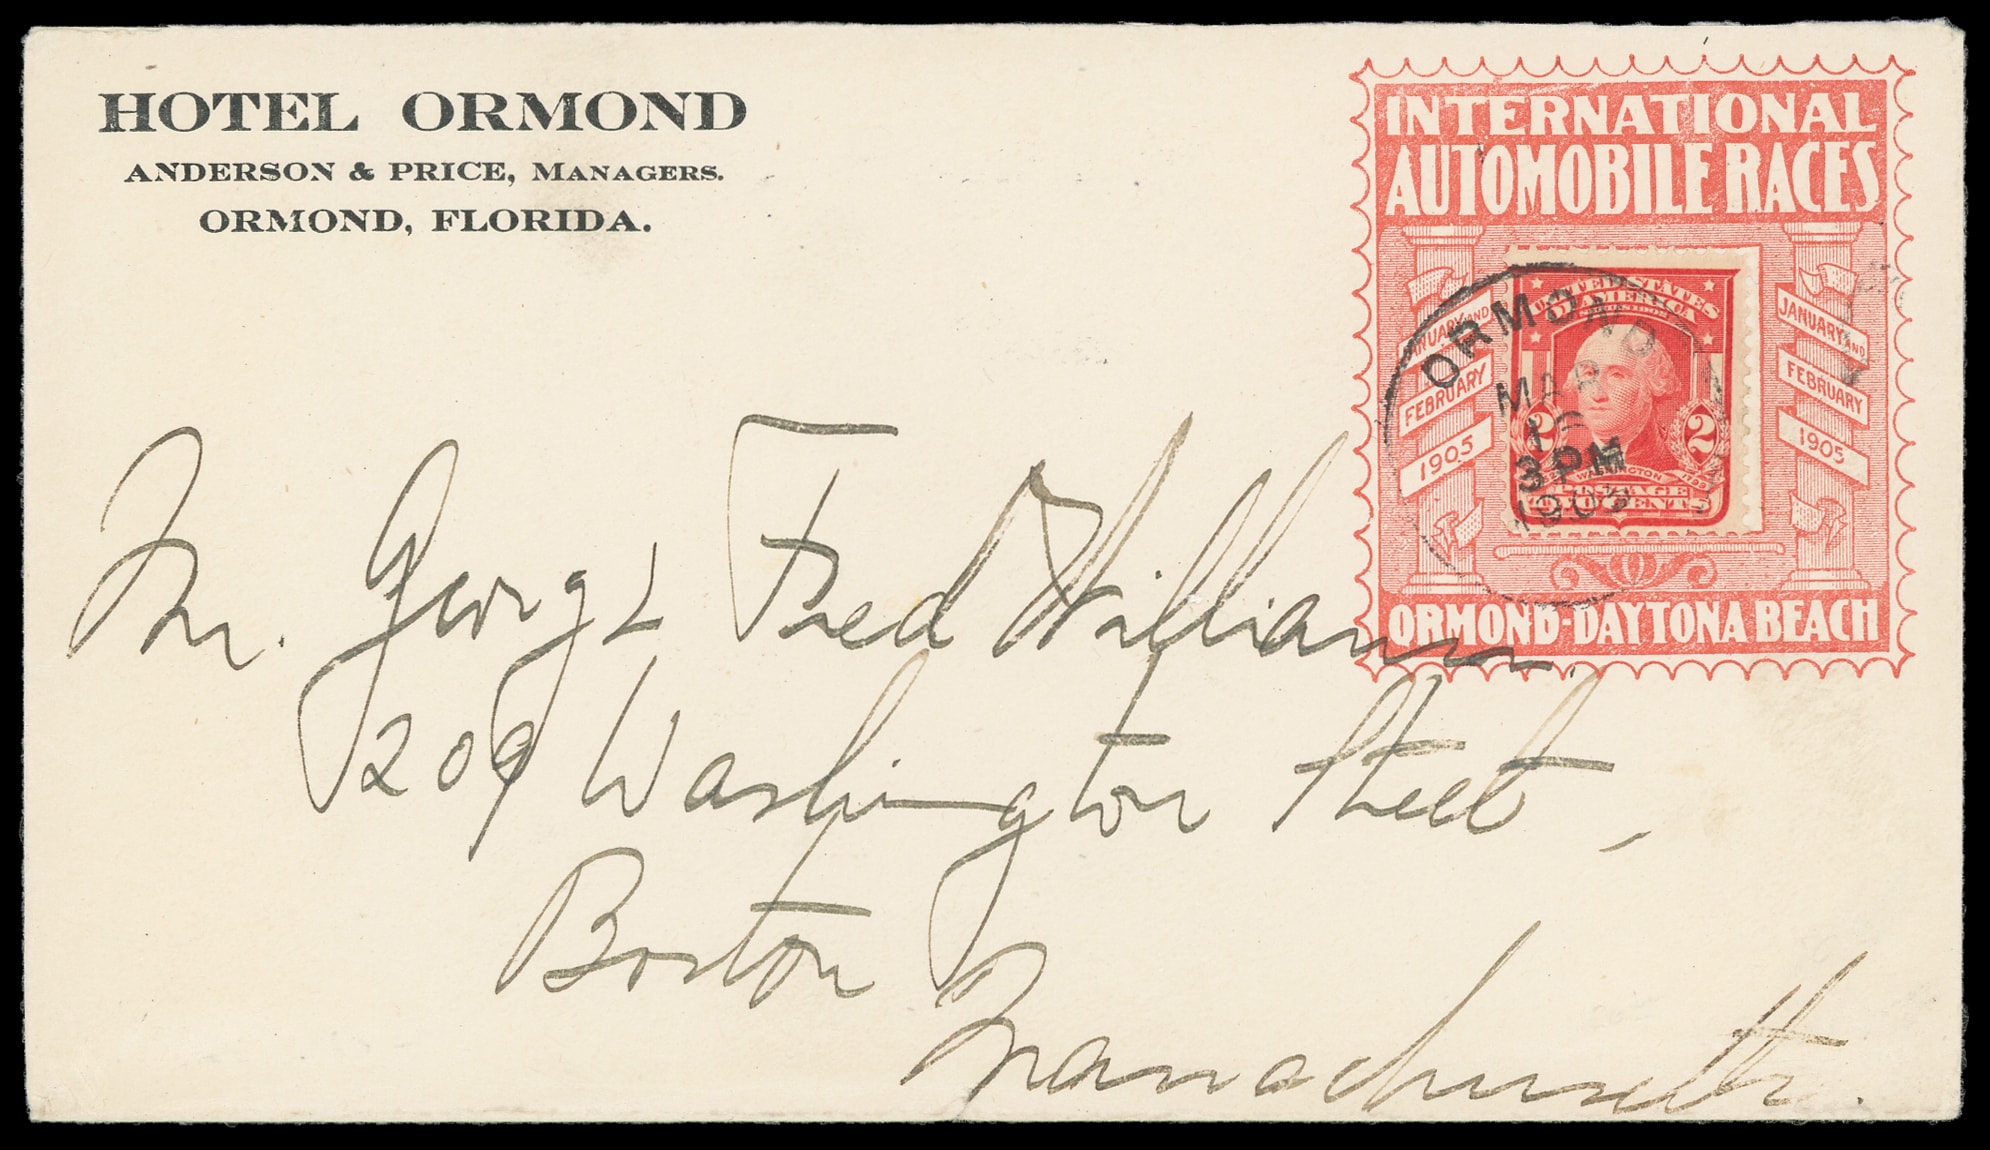 HOTEL ORMOND
ANDERSON & PRICE, MANAGERS.
ORMOND, FLORIDA.
INTERNATIONAL
AUTOMOBILE RACES
JANUARY AND
FEBRUARY
1905
UNITED STATES
OF AMERICA
2 2
WASHINGTON
POSTAGE
TWO CENTS
JANUARY AND
FEBRUARY
1905
ORMOND
MAR
3 PM
ORMOND-DAYTONA BEACH
Mr. George Fred Williams.
209 Washington Street,
Boston
Massachusetts.